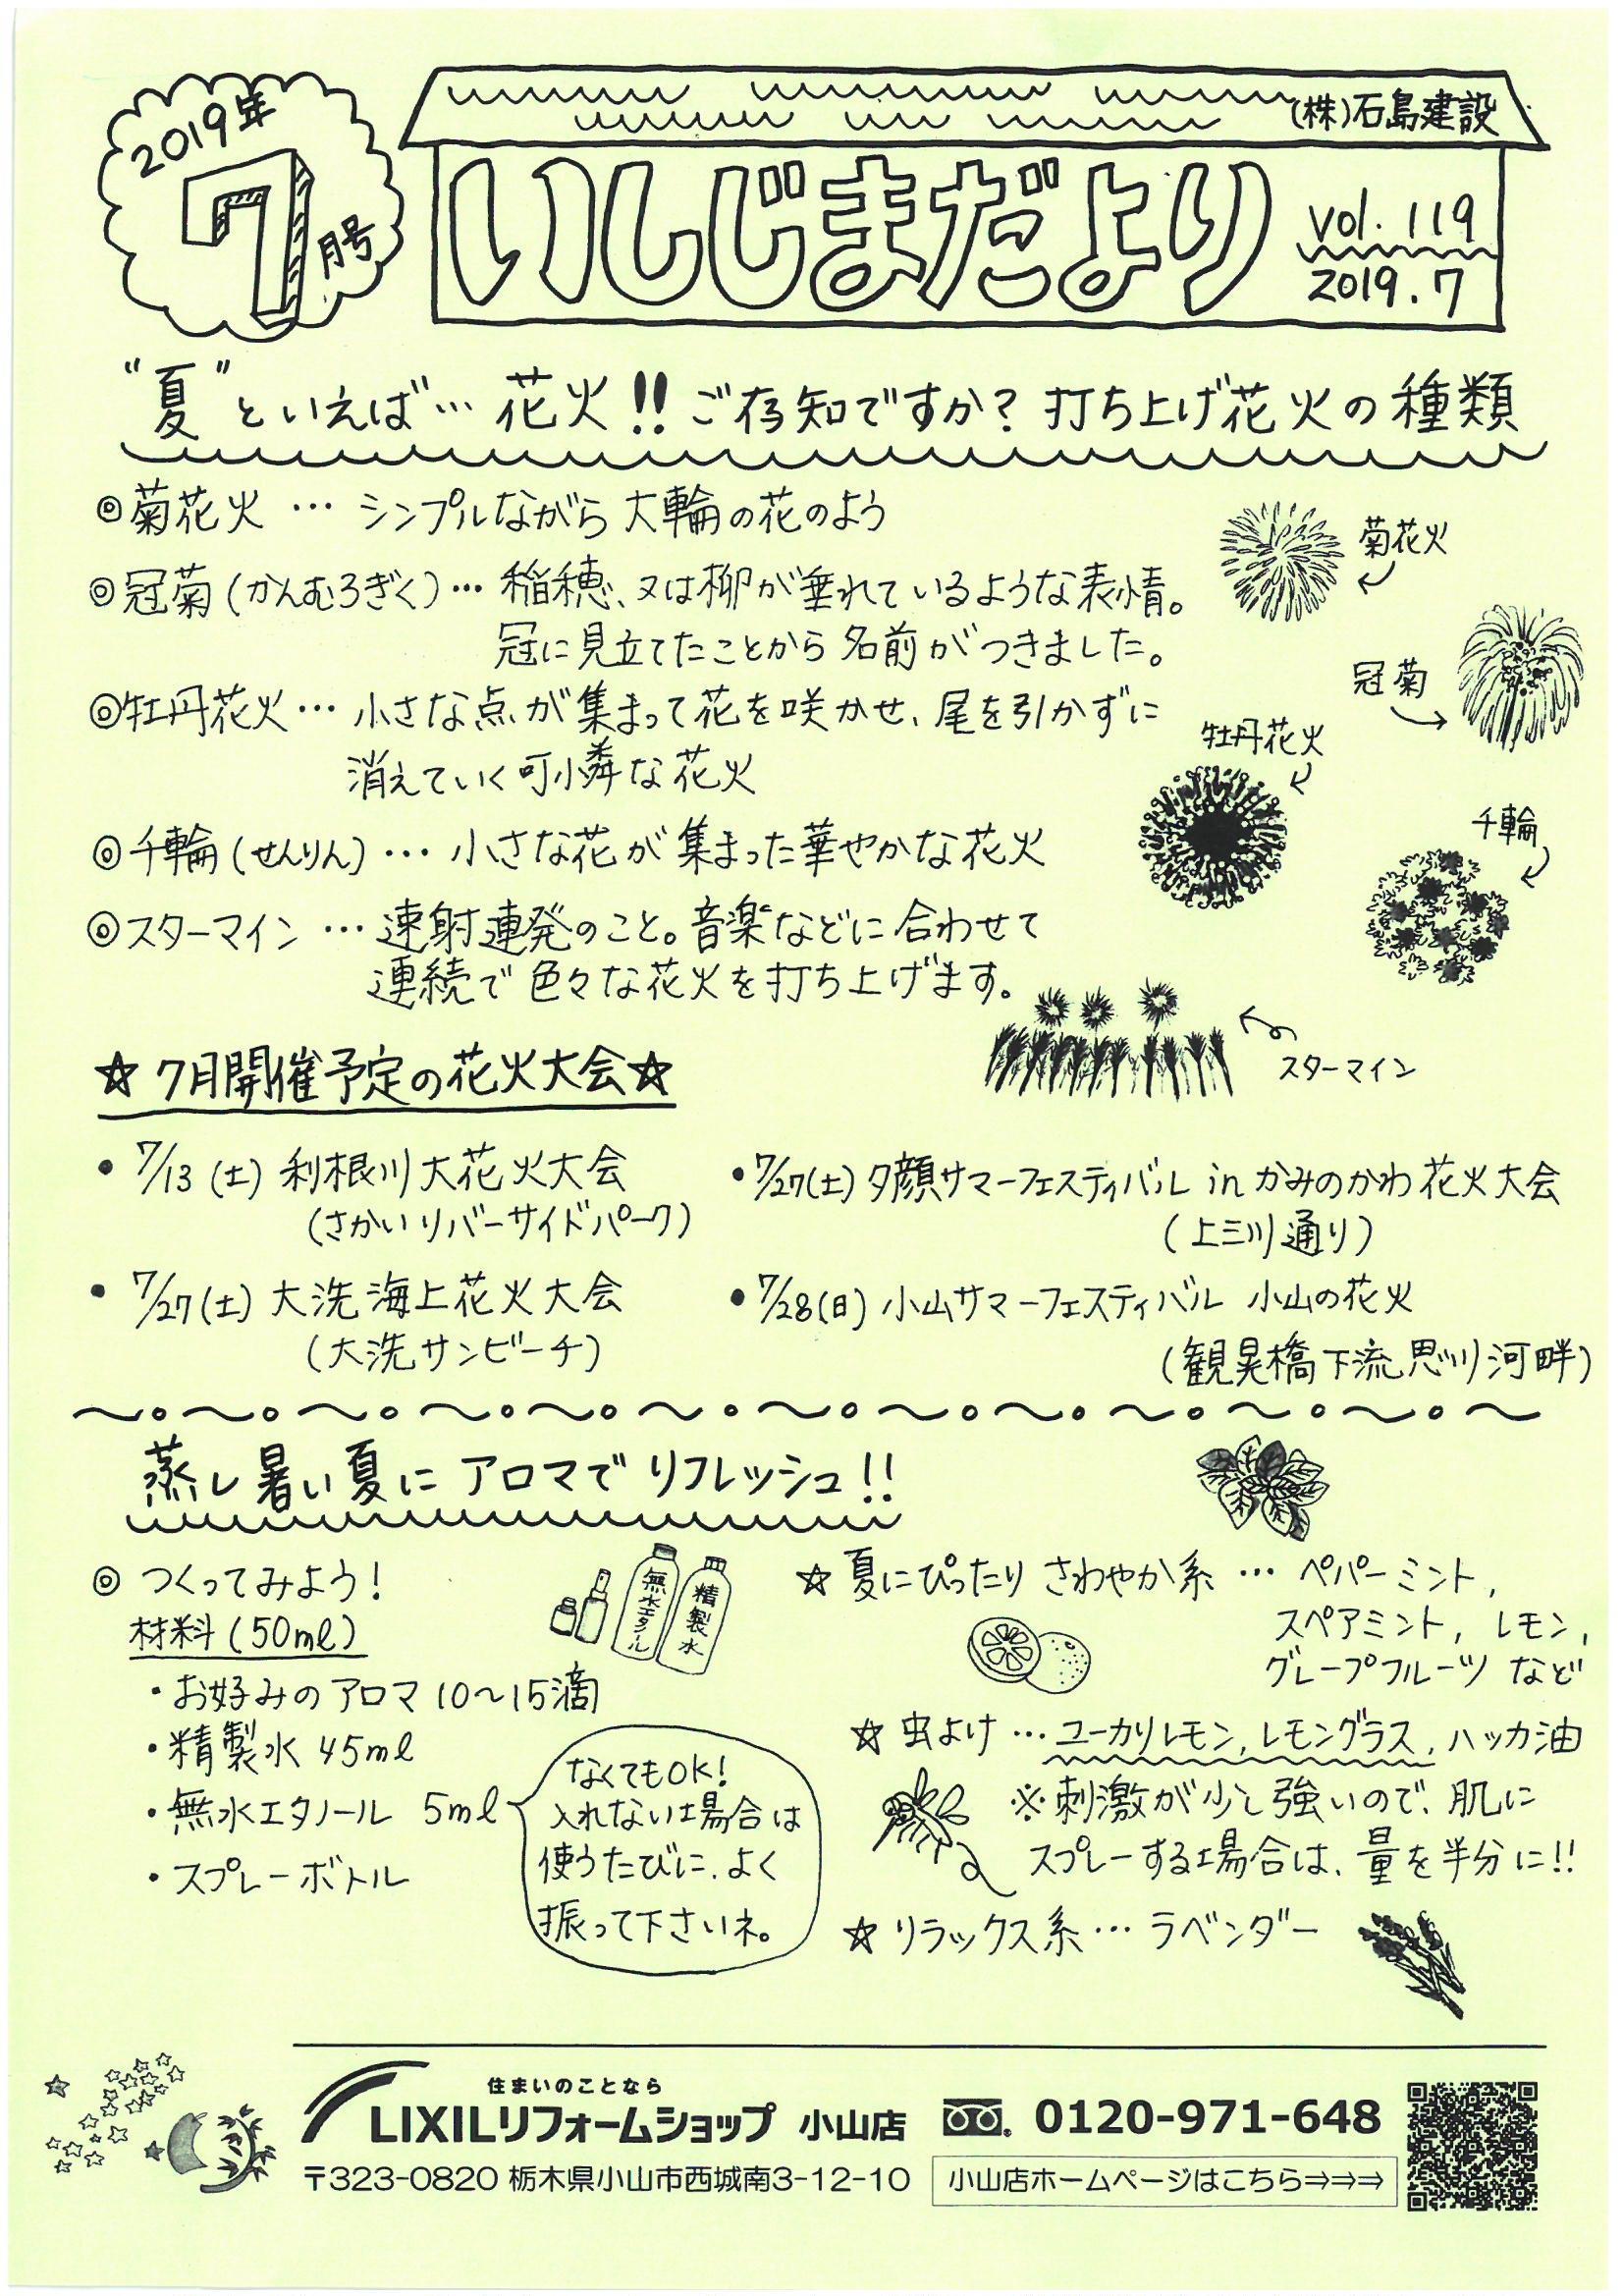 2019年
7月号
(株)石島建設
いしじまだより
vol.119
2019.7
"夏"といえば…花火!!ご存知ですか?打ち上げ花火の種類
◎菊花火 … シンプルながら大輪の花のよう
◎冠菊(かんむろぎく)… 稲穂、又は柳が垂れているような表情。
冠に見立てたことから名前がつきました。
◎牡丹花火… 小さな点が集まって花を咲かせ、尾を引かずに
消えていく可憐な花火
◎千輪(せんりん) … 小さな花が集まった華やかな花火
◎スターマイン … 速射連発のこと。音楽などに合わせて
連続で色々な花火を打ち上げます。
菊花火
冠菊
牡丹花火
千輪
スターマイン
☆7月開催予定の花火大会☆
・7/13(土) 利根川大花火大会
(さかいリバーサイドパーク)
・7/27(土) 大洗海上花火大会
(大洗サンビーチ)
・7/27(土) 夕顔サマーフェスティバル in かみのかわ花火大会
(上三川通り)
・7/28(日) 小山サマーフェスティバル 小山の花火
(観晃橋下流思川河畔)
蒸し暑い夏にアロマでリフレッシュ!!
◎ つくってみよう!
材料(50ml)
・お好みのアロマ 10〜15滴
・精製水 45ml
・無水エタノール 5ml
・スプレーボトル
無水エタノール
精製水
なくてもOK!
入れない場合は
使うたびに、よく
振って下さいネ。
☆夏にぴったり さわやか系 … ペパーミント,
スペアミント, レモン,
グレープフルーツ など
☆ 虫よけ …ユーカリレモン, レモングラス, ハッカ油
※刺激が少し強いので、肌に
スプレーする場合は、量を半分に!!
☆ リラックス系… ラベンダー
住まいのことなら
LIXILリフォームショップ 小山店
0120-971-648
〒323-0820 栃木県小山市西城南3-12-10
小山店ホームページはこちら⇒⇒⇒